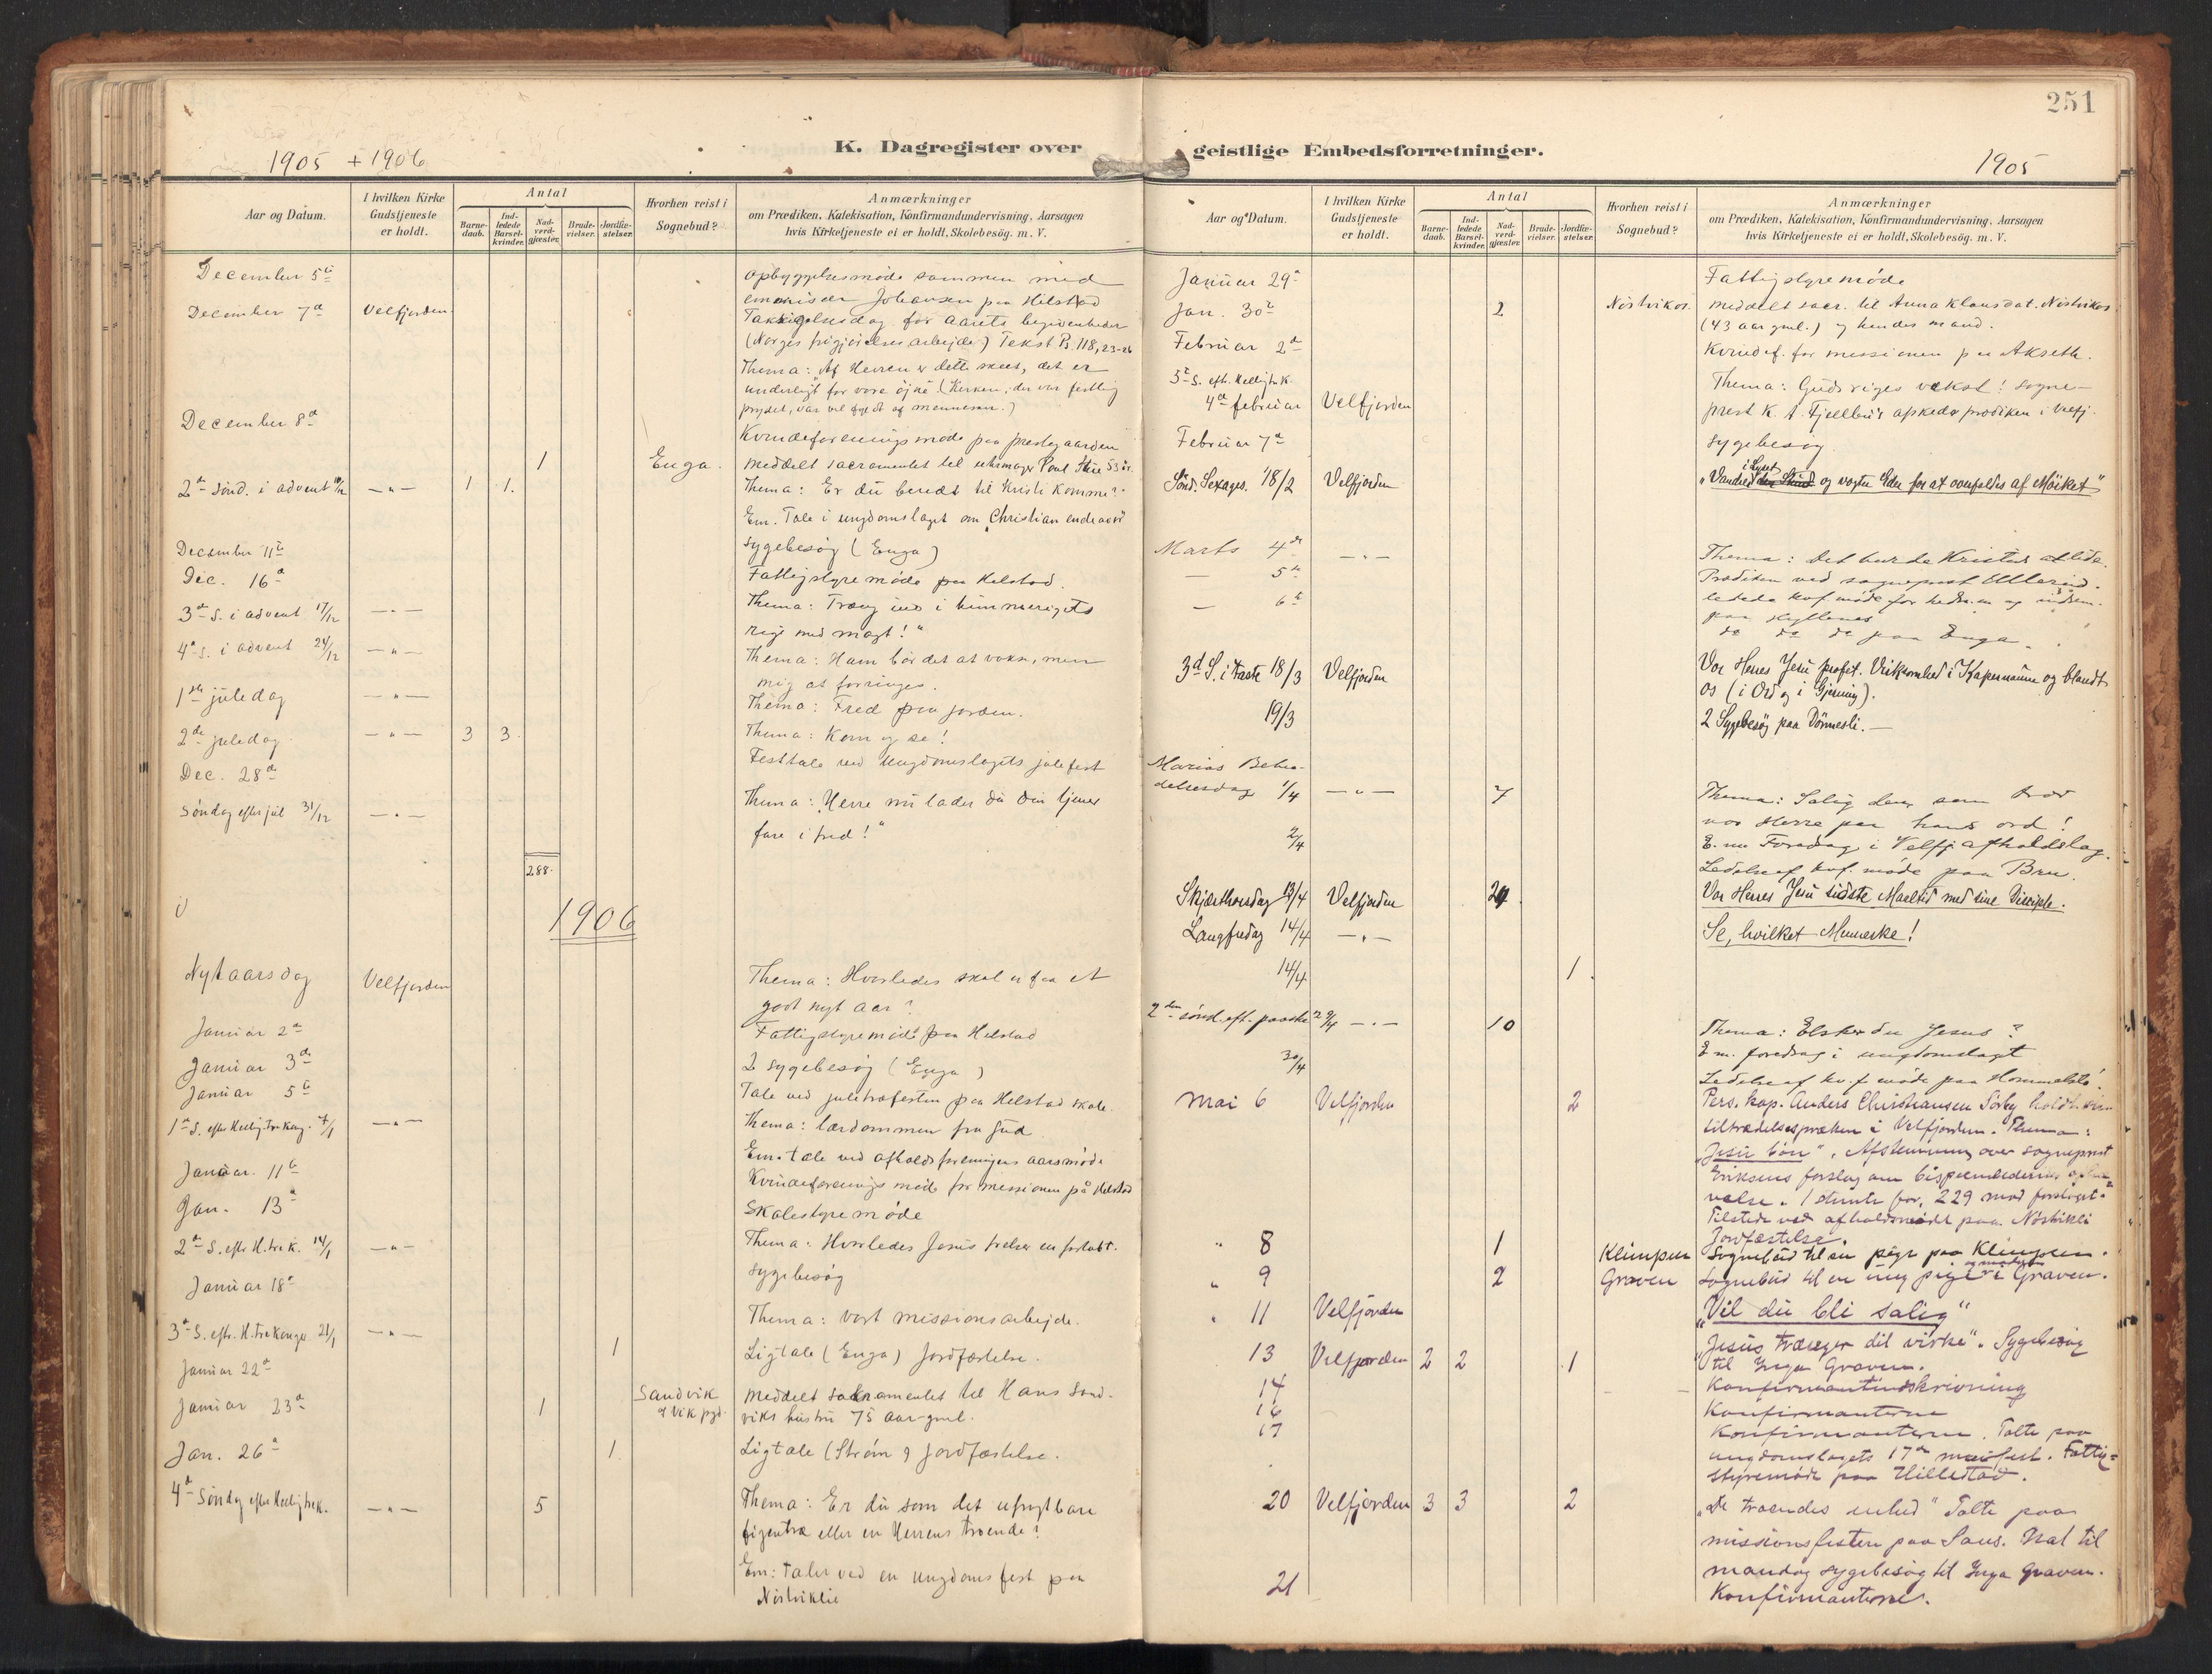 251
K. Dagregister over
geistlige Embedsforretninger.
1905 + 1906
1905
Aar og Datum.
I hvilken Kirke
Gudstjeneste
er holdt.
Antal
Barne-
daab.
Ind-
ledede
Barsel-
kvinder.
Nad-
verd-
gjæster.
Brude-
vielser.
Jordfæ-
stelser.
Hvorhen reist i
Sognebud?
Anmærkninger
om Prædiken, Katekisation, Konfirmandundervisning, Aarsagen
hvis Kirketjeneste ei er holdt, Skolebesög. m. V.
December 5te Opbyggelsesmøde sammen med
emissær Johansen paa Helstad
December 7de Velfjorden. Takkigelsesdag for aarets begivenheder
(Norges frigjørelsesarbejde) Tekst Ps. 118, 23-26
Thema: "Af Herren er dette skeet, det er
underligt for vore øjne (Kirken, der var festlig
prydet, var vel fyldt af mennesker.)
December 8de Kvindeforeningsmøde paa prestegaarden
1 Enga. meddelt sacramentet til urmager Poul Skie 53 år.
2den Sønd. i advent 10/12 -"- 1 1. Thema: Er du beredt til Kristi komme?
Em. Tale i ungdomslaget om Christian endeavor
December 11te Sygebesøg (Enga)
Dec. 16de Fattigstyremøde paa Helstad.
3de S. i advent 17/12 -"- Thema: Træng ind i himmeriges
rige med magt!"
4de S. i advent 24/12 -"- Thema: Ham bør det at vokse, men
mig at forringes.
1ste juledag -"- Thema: Fred paa jorden.
2den juledag -"- 3 3. Thema: Kom og se!
Dec. 28de Festtale ved Ungdomslagets julefest
Søndag efter jul 31/12 -"- Thema: "Herre nu lader du din tjener
fare i fred!"
288.
1906
Nytaarsdag Velfjorden Thema: Hvorledes skal vi faa et
godt nyt aar?
Januar 2den Fattigstyremøde paa Helstad
Januar 3de 2 sygebesøg (Enga)
Januar 5te Tale ved juletræfesten paa Helstad skole.
1ste S. efter Hellig Tre Kong. 7/1 -"- Thema: lærdommen fra Gud
Em. tale ved afholdsforeningens aarsmøde
Januar. 11te Kvindeforenings møde for missionen på Helstad
Jan. 13de Skolestyremøde
2den S. efter H. tre k. 14/1 -"- Thema: Hvorledes Jesus frelser en fortabt.
Januar 18de sygebesøg
3de S. eft. H. Tre Konger 21/1 -"- Thema: vort missionsarbejde.
Januar 22de 1 Ligtale (Enga) Jordfæstelse.
Januar 23de 1 Sandvik meddelt sakramentet til Hans Sand-
viks hustru 75 aar gml.
Jan. 26de 1 Ligtale (Strøm) Jordfæstelse.
4de Søndag efter Hellig trek. -"- 5 Thema: Er du som det ufrugtbare
figentræ eller en Herrens troende?
Em: taler ved en ungdomsfest paa
Nistviklie
Aar og Datum.
I hvilken Kirke
Gudstjeneste
er holdt.
Antal
Barne-
daab.
Ind-
ledede
Barsel-
kvinder.
Nad-
verd-
gjæster.
Brude-
vielser.
Jordfæ-
stelser.
Hvorhen reist i
Sognebud?
Anmærkninger
om Prædiken, Katekisation, Konfirmandundervisning, Aarsagen
hvis Kirketjeneste ei er holdt, Skolebesög. m. V.
Januar 29de Fattigstyremøde
Jan. 30te 2 meddelt sacr. til Anna Klausdat.
(43 aar gml.) og hendes mand.
Februar 2den Kvindef. for missionen paa Akseth.
3de S. eft. Hellig tr. K.
4de februar Velfjorden Thema: Guds riges vækst! Sogne-
prest K. A. Fjellbu's afskedsprædiken i Velfj.
Februar 7de Sygebesøg
Sønd. Sexages. 18/2 Velfjorden "Vandrer i Lyset og vogter Eder for at overfaldes af Mörket"
Marts 4de -"- Thema: Det burde Kristus at lide.
Prædiken ved sogneprest
5te ledede kvf. møde for
6te do do do paa Enga.
3d S. i Faste 18/3 Velfjorden Vor Herres Jesu profet. Virksomhed i Kapernaum og blandt
os (i Ord og i Gjerning).
19/3 2 Sygebesøg paa Dönnesli.
Marias Bebu-
delsesdag 1/4 -"- 7 Thema: Salig den, som tror
vor Herre paa hans ord!
E. m. Foredrag i Velfj. afholdslag.
2/4 Ledelse af kvf. møde paa Bru.
Skjærthorsdag 13/4 Velfjorden 24 Vor Herres Jesu sidste Maaltid med sine Disciple.
Langfredag 14/4 -"- Se, hvilket Menneske!
14/4 1.
2den sönd. eft. paaske 29/4 -"- 10 Thema: Elsker du Jesus?
E m. foredrag i ungdomslaget
30/4 Ledelse af kv.f. møde paa
Mai 6 Velfjorden 2 Pers. kap. Anders Christiansen Sörby holdt sin
tiltrædelsespræken i Velfjorden. Thema:
"Jesu bön". Afstemning over sogneprest
Eriksens forslag om bispeembedernes
1 stemte for, 229 mod forslaget.
Tilstede ved afholdsmöde paa Nöstvikli
Jordfæstelse.
" 8 1 Klimpen Sognebud til en pige paa Klimpen.
" 9 2 Graven Sognebud til en ung pige i Graven.
" 11 Velfjorden "Vil du bli salig"
13 Velfjorden 2 2 1 "Jesus trænger dit virke". Sygebesög
til Inga Graven.
14 Konfirmantindskrivning
16 Konfirmanterne
17 Konfirmanterne. Talte paa
ungdomslagets 17de maifest. Fattig-
styremöde paa Hillestad.
20 Velfjorden 3 3 2 "De troendes enhed" Talte paa
missionsfesten paa Saus. Nat til
mandag sygebesög til Inga Graven.
21 Konfirmanterne.